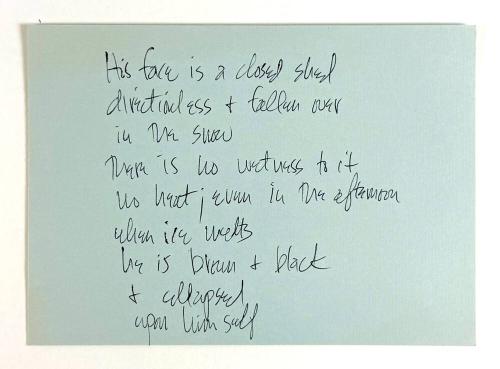 His face is a closed shed
directionless + fallen over
in the snow
there is no wetness to it
no heat; even in the afternoon
when ice melts
he is brown + black
+ collapsed
upon himself